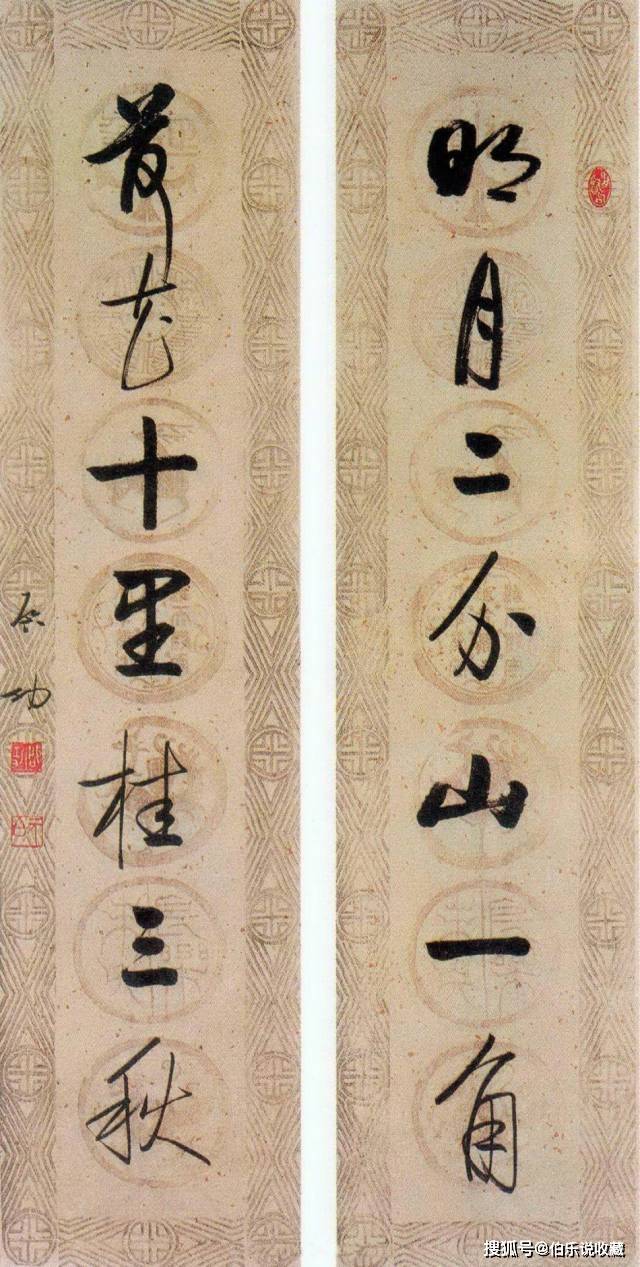 明月二分山一角
荷花十里桂三秋
启功
搜狐号@伯乐说收藏